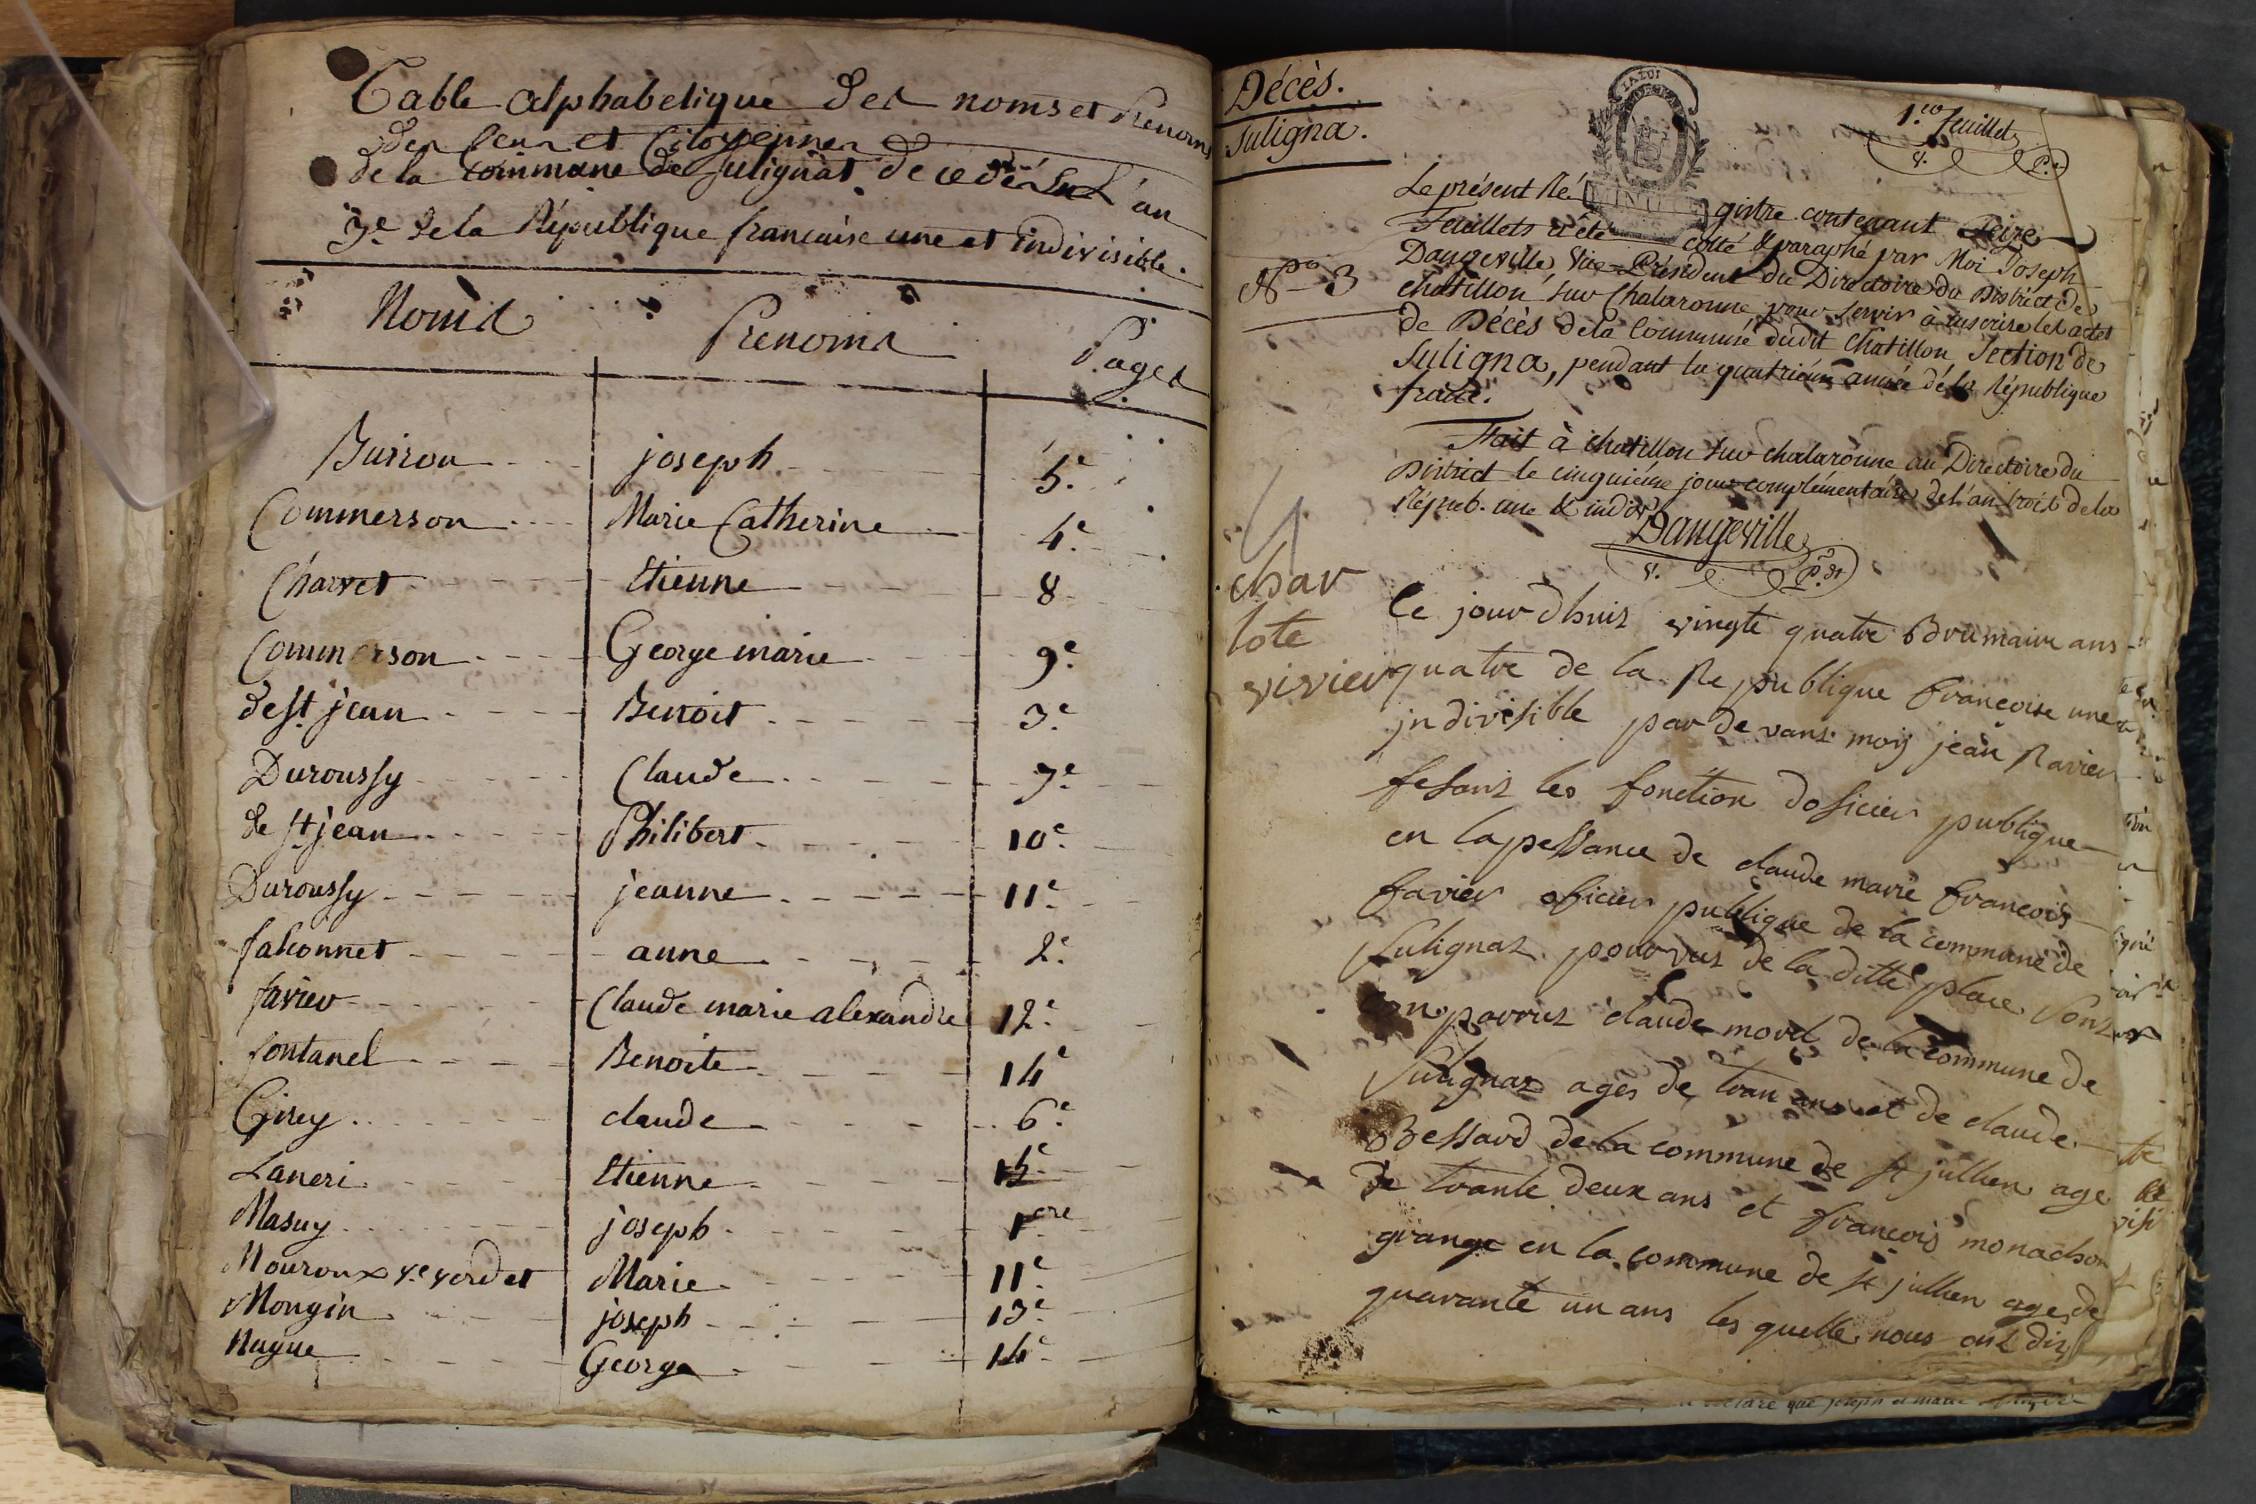 Table alphabetique des noms et Prenoms
des Ceux et Citoyennes
de la commune de Sulignat decedés en L'an
3e. de la République francaise une et indivisible.
Noms Prenoms Pages
Buiron joseph 5e.
Commerson Marie Catherine 4e.
Charvet Etienne 8
Commerson George marie 9e.
de st. jean Benoit 3e.
Duroussy Claude 7e.
de st jean Philibert 10e.
Duroussy jeanne 11e.
falconnet anne 2e.
favier Claude marie alexandre 12e.
fontanel Benoite 14e
Girey claude 6e.
Laneri Etienne 15e.
Masuy joseph 1ere
Mouroux ve. verdet Marie 11e.
Mongin joseph 13e.
Nugue George 14e.
Décès.
Suligna.
1.er feuillet
V. P.dt
No. 3
Le présent Régistre contenant Seize
Feuillets a été cotté & paraphé par Moi Joseph
Dangeville, Vice-Président du Directoire du District de
Chatillon sur Chalaronne pour servir à inscrire les actes
de Décès de la Commune dudit Chatillon Section de
Suligna, pendant la quatriéme année de la République
francse.
Fait à chatillon sur chalaronne au Directoire du
District le cinquiéme jour complémentaire de l'an trois de la
Répub. une & indiv.
Dangeville
V. P.dt
char
lote
vivier
Ce jour dhuit vingte quatre Brumaire ans
quatre de la Republique françoise une et
jndivisible par devant moy jean Ravier
fesant les fonction doficier publique
en lapessance de claude marie françois
favier oficier publique de la commune de
Sulignat pourvus de la ditte place sont
conparrut claude morel de la commune de
Sulignat ages de tran ans et de claude
Bessard de la commune de st jullien age
de trante deux ans et françois monachon
grange en la commune de st jullien age de
quarante un ans les quelle nous ont dit